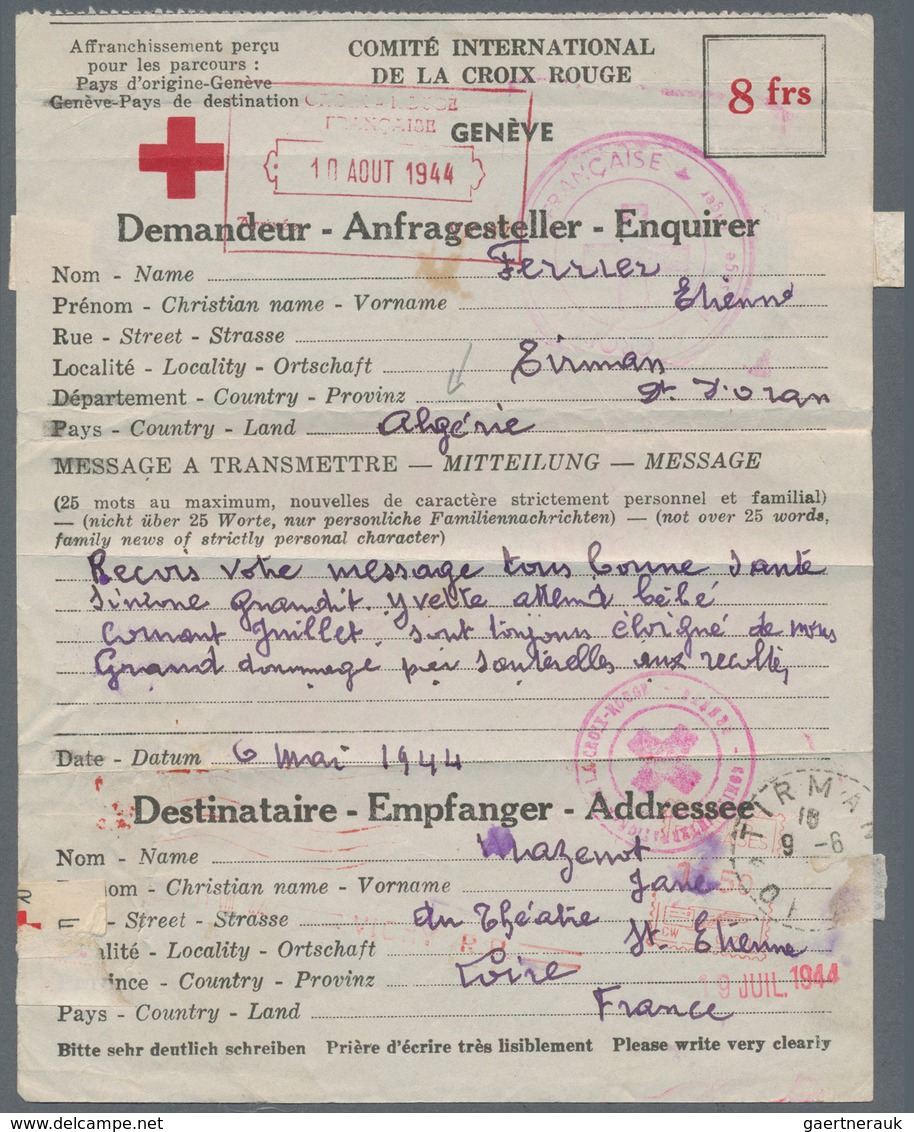 Affranchissement perçu
pour les parcours :
Pays d'origine-Genève
Genève-Pays de destination
COMITÉ INTERNATIONAL
DE LA CROIX ROUGE
GENÈVE
8 frs
CROIX-ROUGE
FRANÇAISE
10 AOUT 1944
FRANÇAISE
Demandeur - Anfragesteller - Enquirer
Nom - Name Ferrier
Prénom - Christian name - Vorname Etienne
Rue - Street - Strasse
Localité - Locality - Ortschaft Tirman
Département - Country - Provinz Dt D'oran
Pays - Country - Land Algérie
MESSAGE A TRANSMETTRE — MITTEILUNG — MESSAGE
(25 mots au maximum, nouvelles de caractère strictement personnel et familial)
— (nicht über 25 Worte, nur personliche Familiennachrichten) — (not over 25 words,
family news of strictly personal character)
Reçois votre message tous bonne santé
Simone grandit. Yvette attend bébé
Courant Juillet. sont toujours éloigné de nous
Grand dommage par sauterelles aux recoltes
Date - Datum 6 mai 1944
LA CROIX-ROUGE
Destinataire - Empfanger - Addressee
TIRMAN
9 -6
Nom - Name Mazenot
nom - Christian name - Vorname Jane
- Street - Strasse du Théatre
alité - Locality - Ortschaft St. Etienne
ince - Country - Provinz Loire
19 JUIL. 1944
Pays - Country - Land France
Bitte sehr deutlich schreiben Prière d'écrire très lisiblement Please write very clearly
gaertnerauk